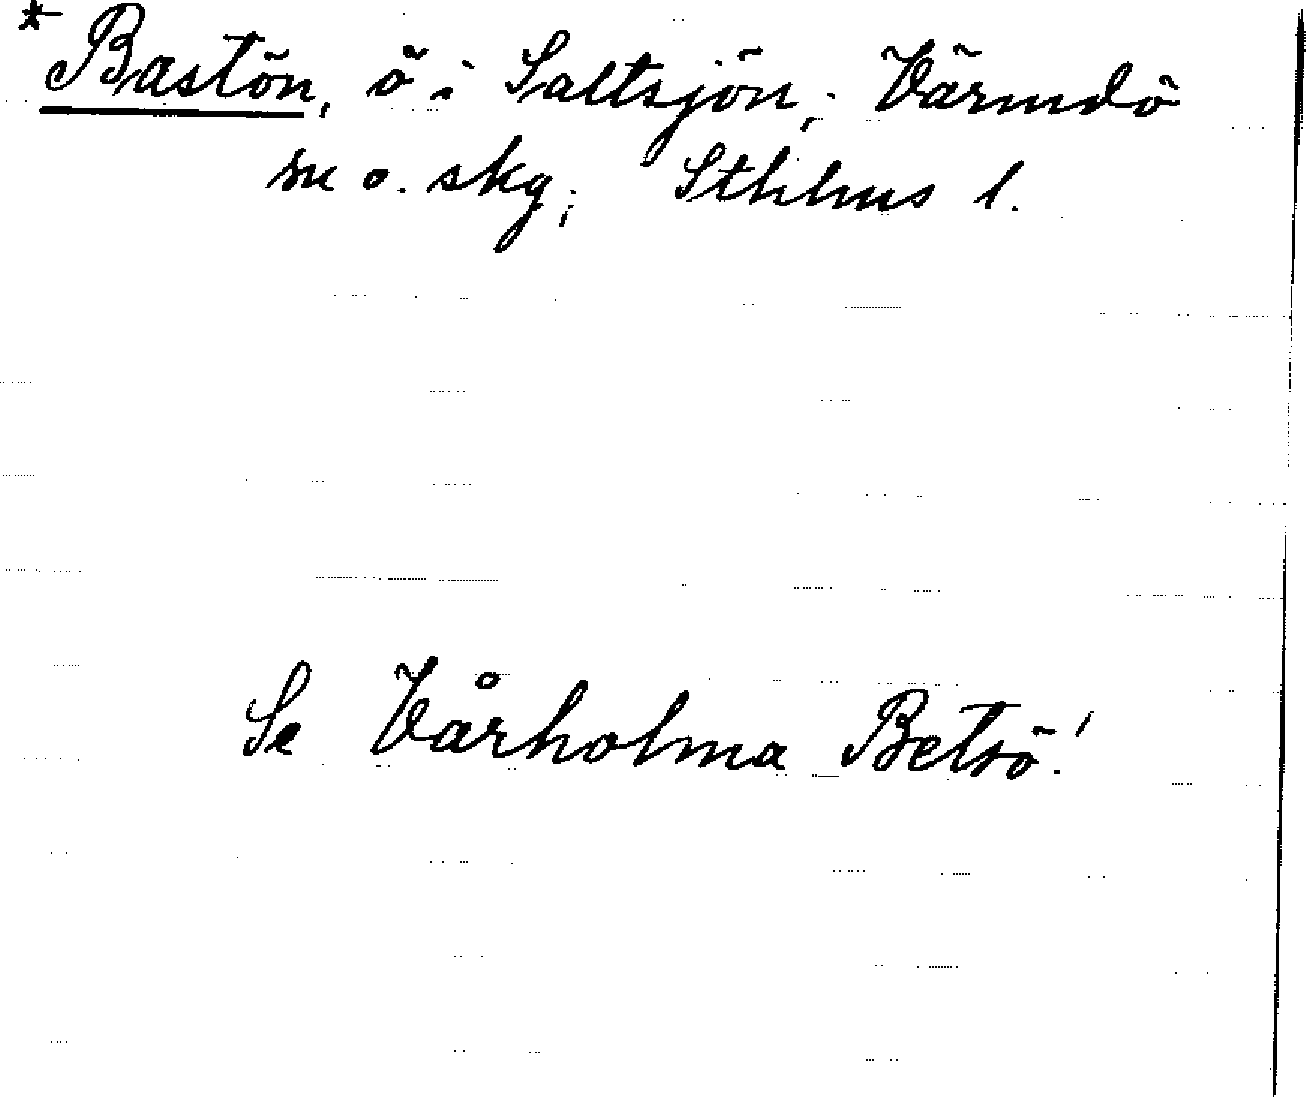 * Bastön, ö i Saltsjön, Värmdö
sn o. skg; Sthlms l.
Se Vårholma Betsö!